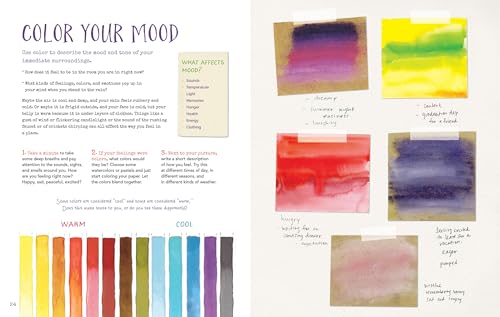 COLOR YOUR MOOD
Use color to describe the mood and tone of your
immediate surroundings.
• How does it feel to be in the room you are in right now?
• What kinds of feelings, colors, and emotions pop up in
your mind when you stand in the rain?
Maybe the air is cool and damp, and your skin feels rubbery and
cold. Or maybe it is bright outside, and your face is cold, but your
belly is warm because it is under layers of clothes. Things like a
gust of wind or flickering candlelight or the sound of the rushing
faucet or of crickets chirping can all affect the way you feel in
a place.
WHAT AFFECTS
MOOD?
• Sounds
• Temperature
• Light
• Memories
• Hunger
• Health
• Energy
• Clothing
1. Take a minute to take
some deep breaths and pay
attention to the sounds, sights,
and smells around you. How
are you feeling right now?
Happy, sad, peaceful, excited?
2. If your feelings were
colors, what colors would
they be? Choose some
watercolors or pastels and just
start coloring your paper. Let
the colors blend together.
3. Next to your picture,
write a short description
of how you feel. Try this
at different times of day, in
different seasons, and
in different kinds of weather.
Some colors are considered "cool" and some are considered "warm."
Does this make sense to you, or do you see them differently?
WARM
COOL
24
- summer night
- content
- graduation day
for a friend
hungry
waiting for an
exciting dinner
feeling excited
to leave for a
vacation.
eager
pumped
wistful
remembering